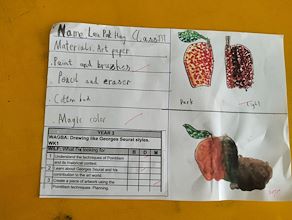 Name Lea Pak Hay Class 1M
Materials: Art paper
Paint and brushes
Pencil and eraser
Cotton bud
Magic color
Dark
Light
YEAR 3
WAGBA: Drawing like Georges Seurat styles.
WK1
WILF: What I'm looking for B D M
1 Understand the techniques of Pointilism and its historical context.
2 Learn about Georges Seurat and his contribution to the art world.
3 Create a piece of artwork using the Pointilism techniques. Planning.